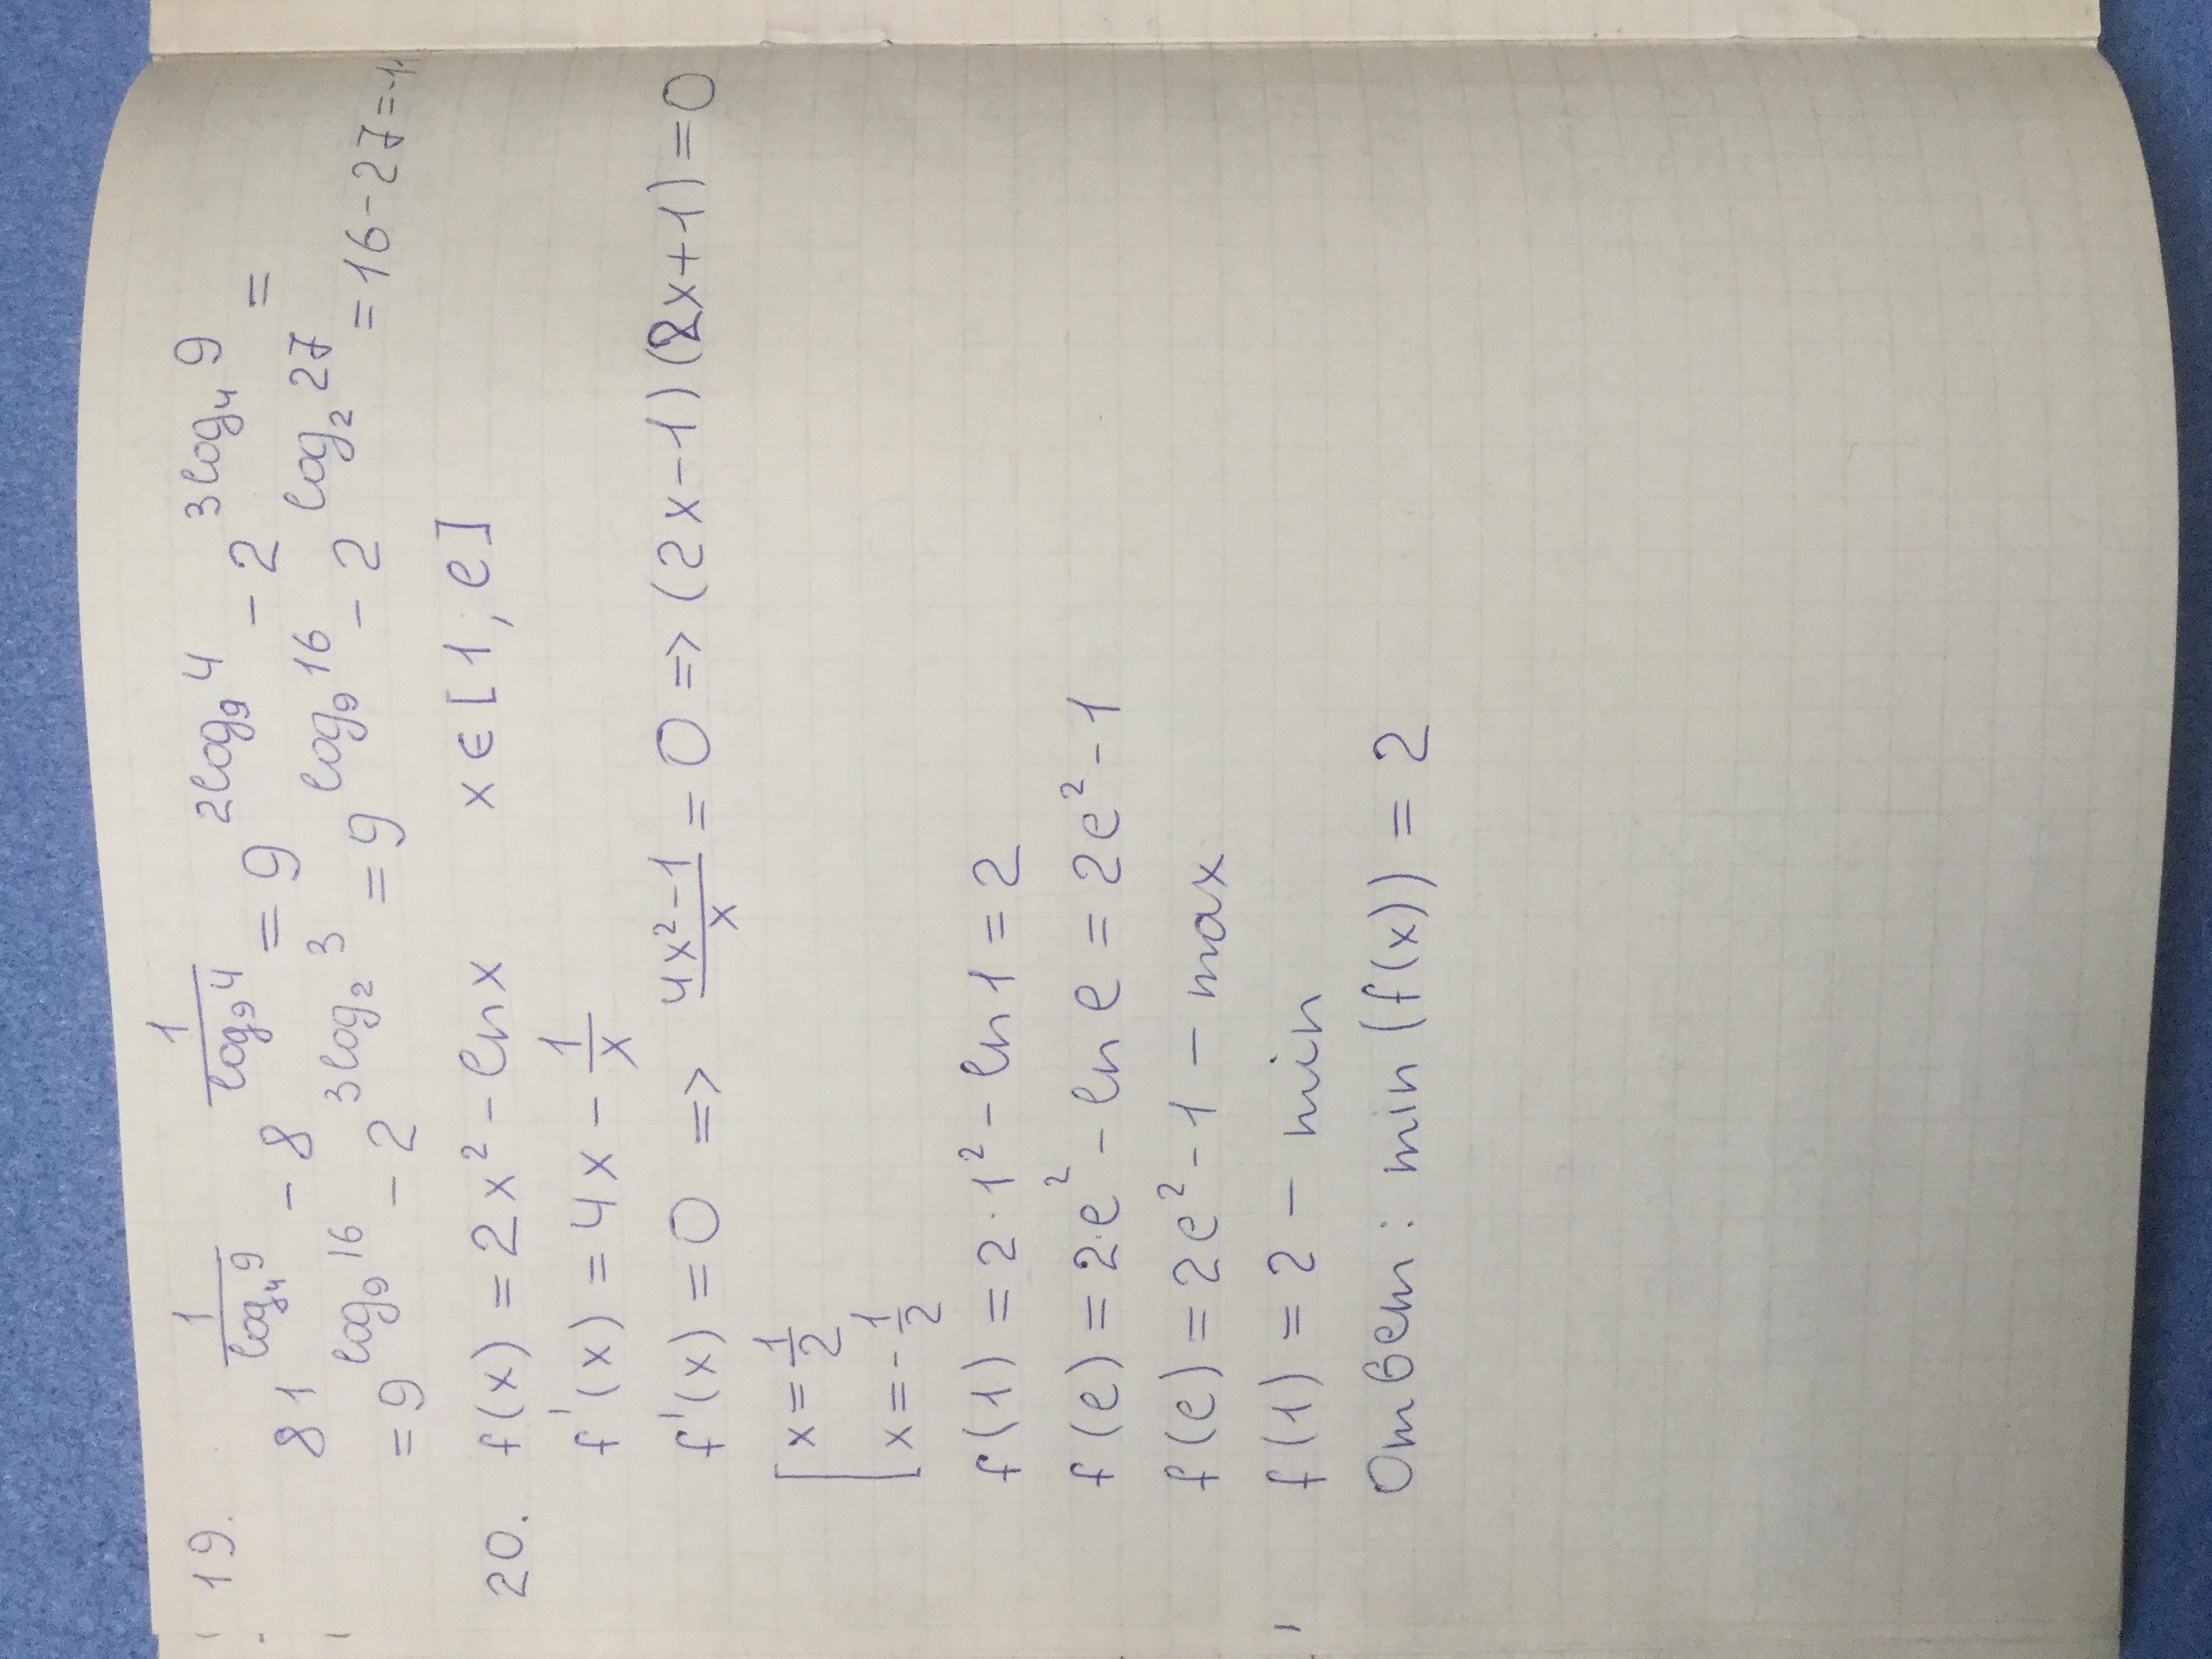 19.
81^(1/log₄9) - 8^(1/log₉4) = 9^(2log₉4) - 2^(3log₄9) =
= 9^(log₉16) - 2^(3log₂3) = 9^(log₉16) - 2^(log₂27) = 16 - 27 = -1
20. f(x) = 2x² - ln x x ∈ [1; e]
f'(x) = 4x - 1/x
f'(x) = 0 => (4x² - 1)/x = 0 => (2x - 1)(2x + 1) = 0
[x = 1/2
[x = -1/2
f(1) = 2·1² - ln 1 = 2
f(e) = 2·e² - ln e = 2e² - 1
f(e) = 2e² - 1 - max
f(1) = 2 - min
Ответ: min (f(x)) = 2